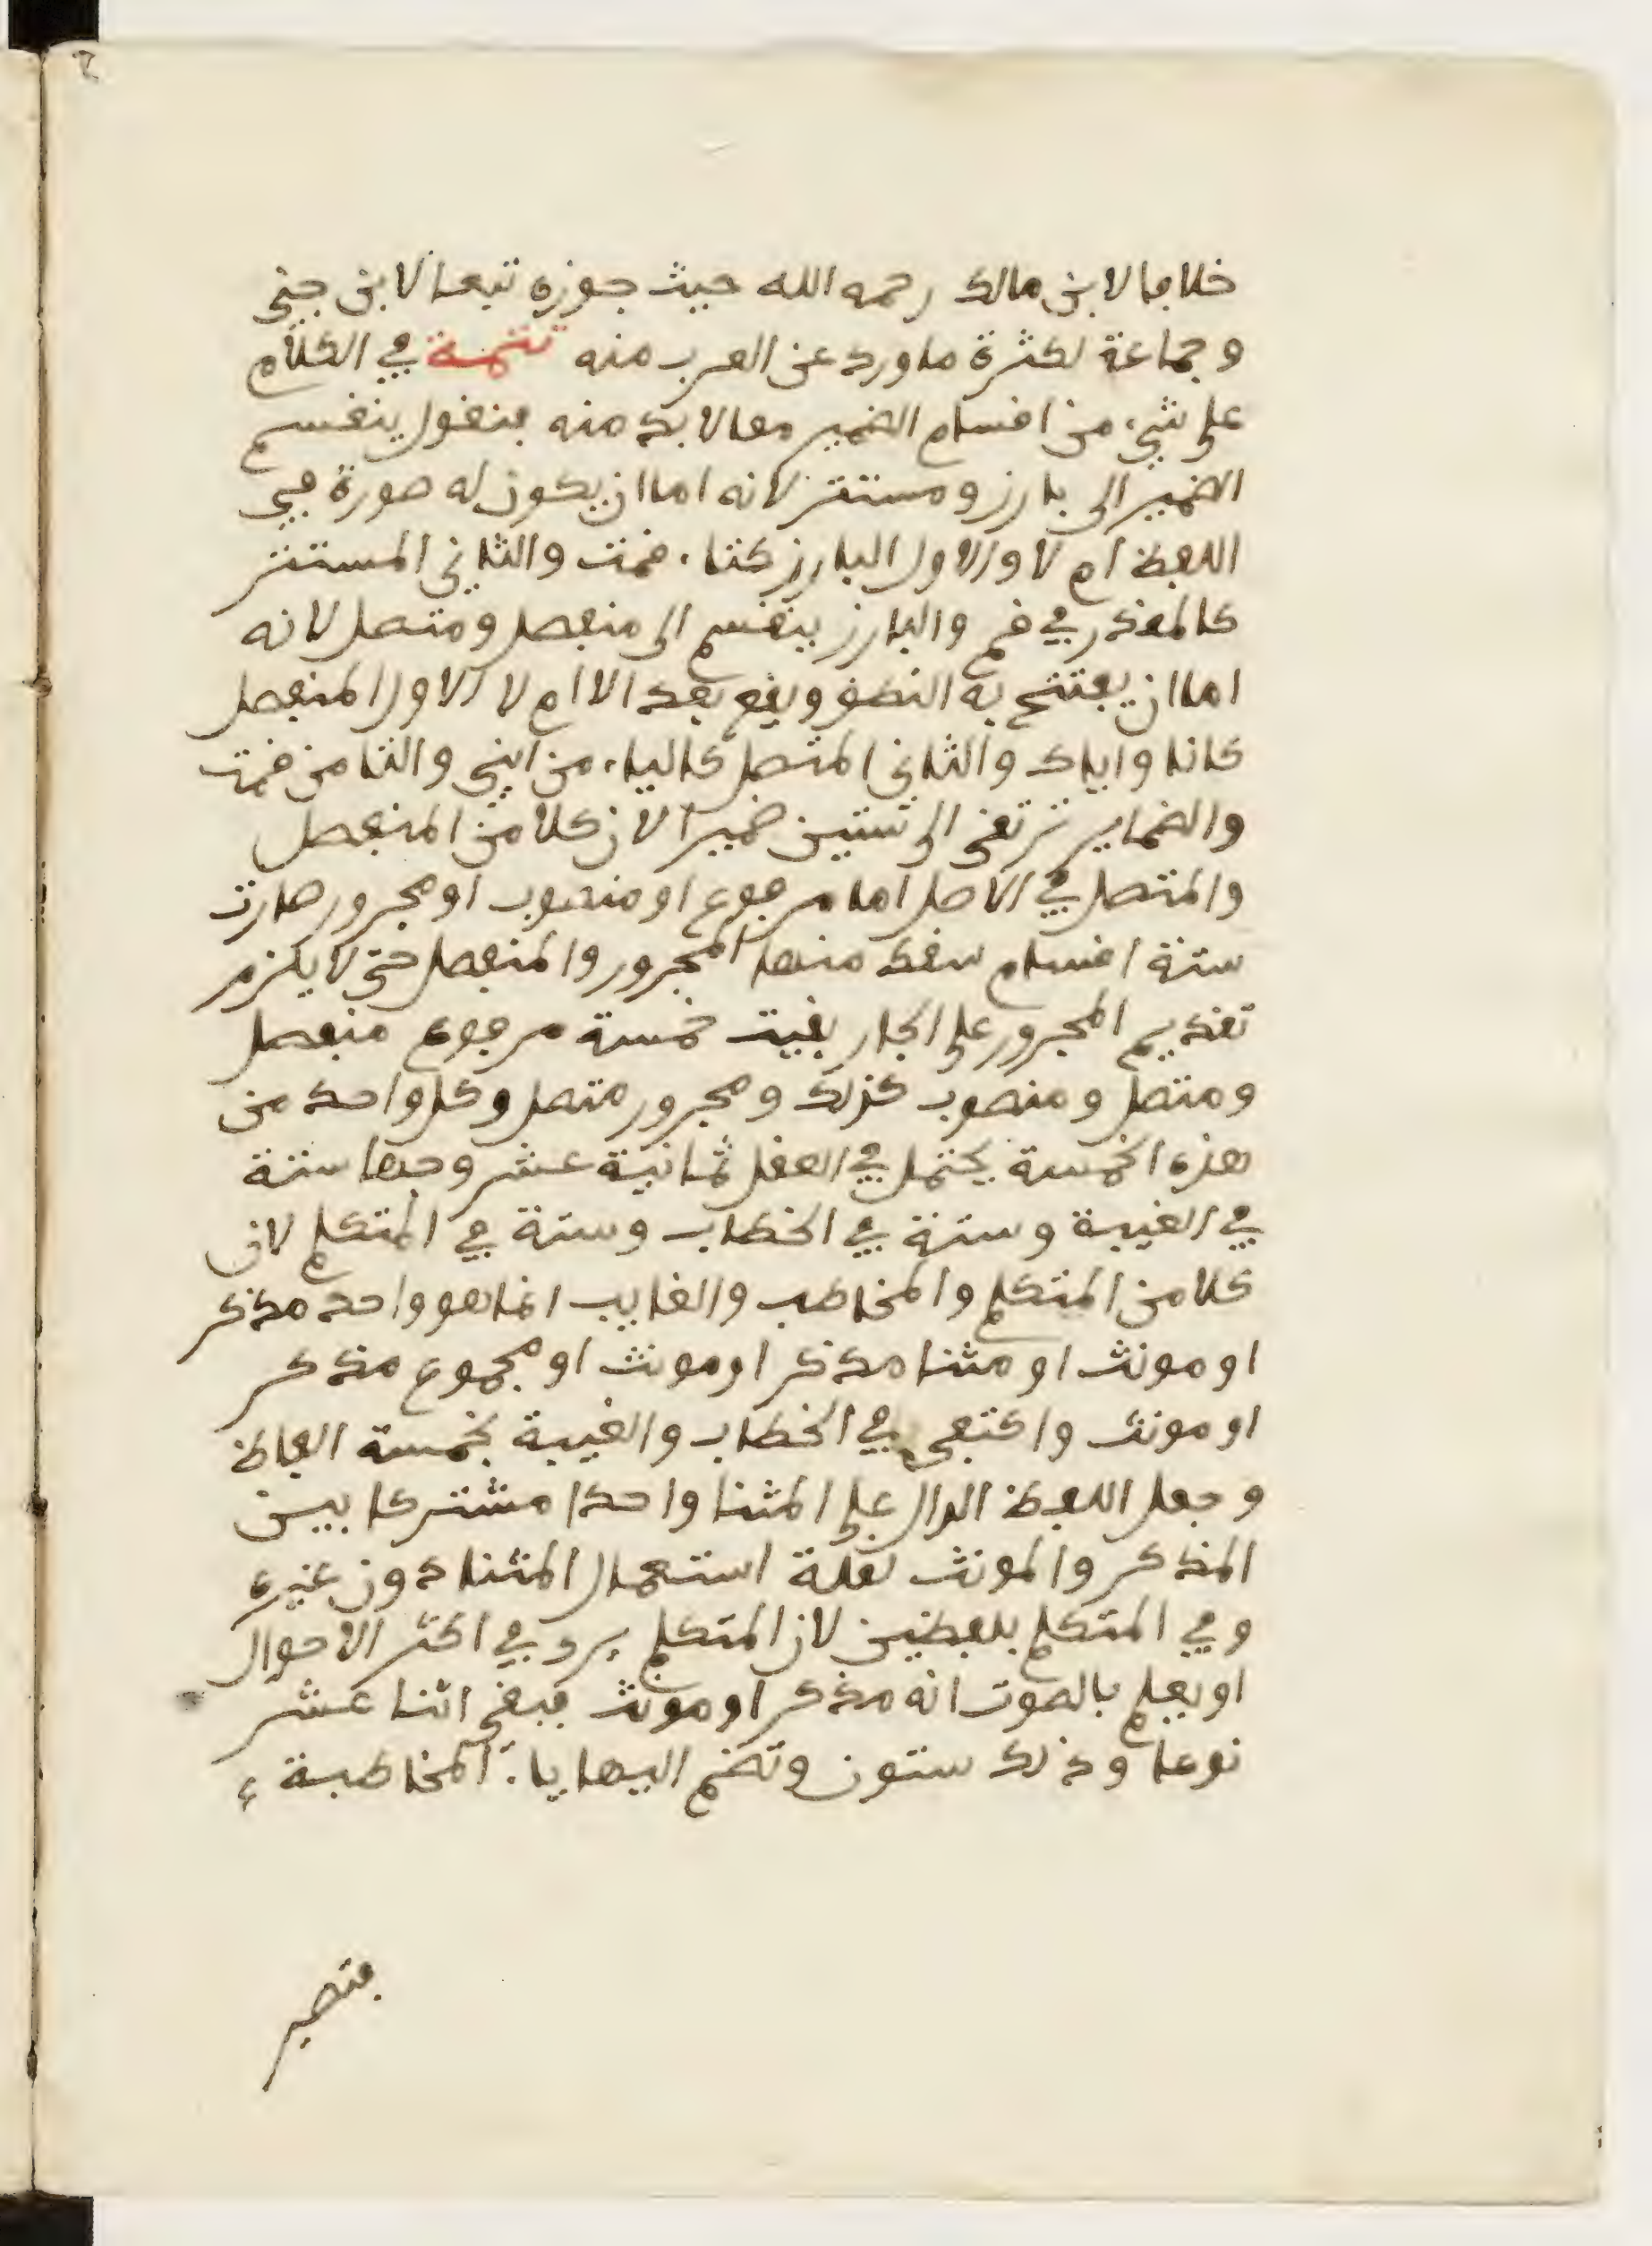 خلافا لابن مالك رحمه الله حيث جوزه تبعا لابن جني
وجماعة لكثرة ما ورد عن العرب منه تتمة في الكلام
على شيء من اقسام الضمير مما لا بد منه فنقول ينقسم
الضمير الى بارز ومستتر لانه اما ان يكون له صورة في
اللفظ ام لا والاول البارز كتاء قمت والثاني المستتر
كالمقدر في قم والبارز ينقسم الى منفصل ومتصل لانه
اما ان يفتتح به النطق ويقع بعد الا ام لا الاول المنفصل
كانا واياك والثاني المتصل كالياء من ابني والتا من قمت
والضماير ترتقى الى ستين ضميرا لان كلا من المنفصل
والمتصل في الاصل اما مرفوع او منصوب او مجرور صارت
ستة اقسام سقط منها المجرور والمنفصل حتى لا يلزم
تقديم المجرور على الجار بقيت خمسة مرفوع منفصل
ومتصل ومنصوب كذلك ومجرور متصل وكل واحد من
هذه الخمسة يحتمل في العقل ثمانية عشر وجها ستة
في الغيبة وستة في الخطاب وستة في المتكلم لان
كلا من المتكلم والمخاطب والغايب انما هو واحد مذكر
او مونث او مثنا مذكر او مونث او مجموع مذكر
او مونث واكتفى في الخطاب والغيبة بخمسة الفاظ
وجعل اللفظ الدال على المثنا واحدا مشتركا بين
المذكر والمونث لقلة استعمال المثنا دون غيره
وفي المتكلم بلفظين لان المتكلم يرى في اكثر الاحوال
او يعلم بالصوت انه مذكر او مونث فبقى اثنا عشر
نوعا وذلك ستون وتضم اليها ياء المخاطبة
فتصير